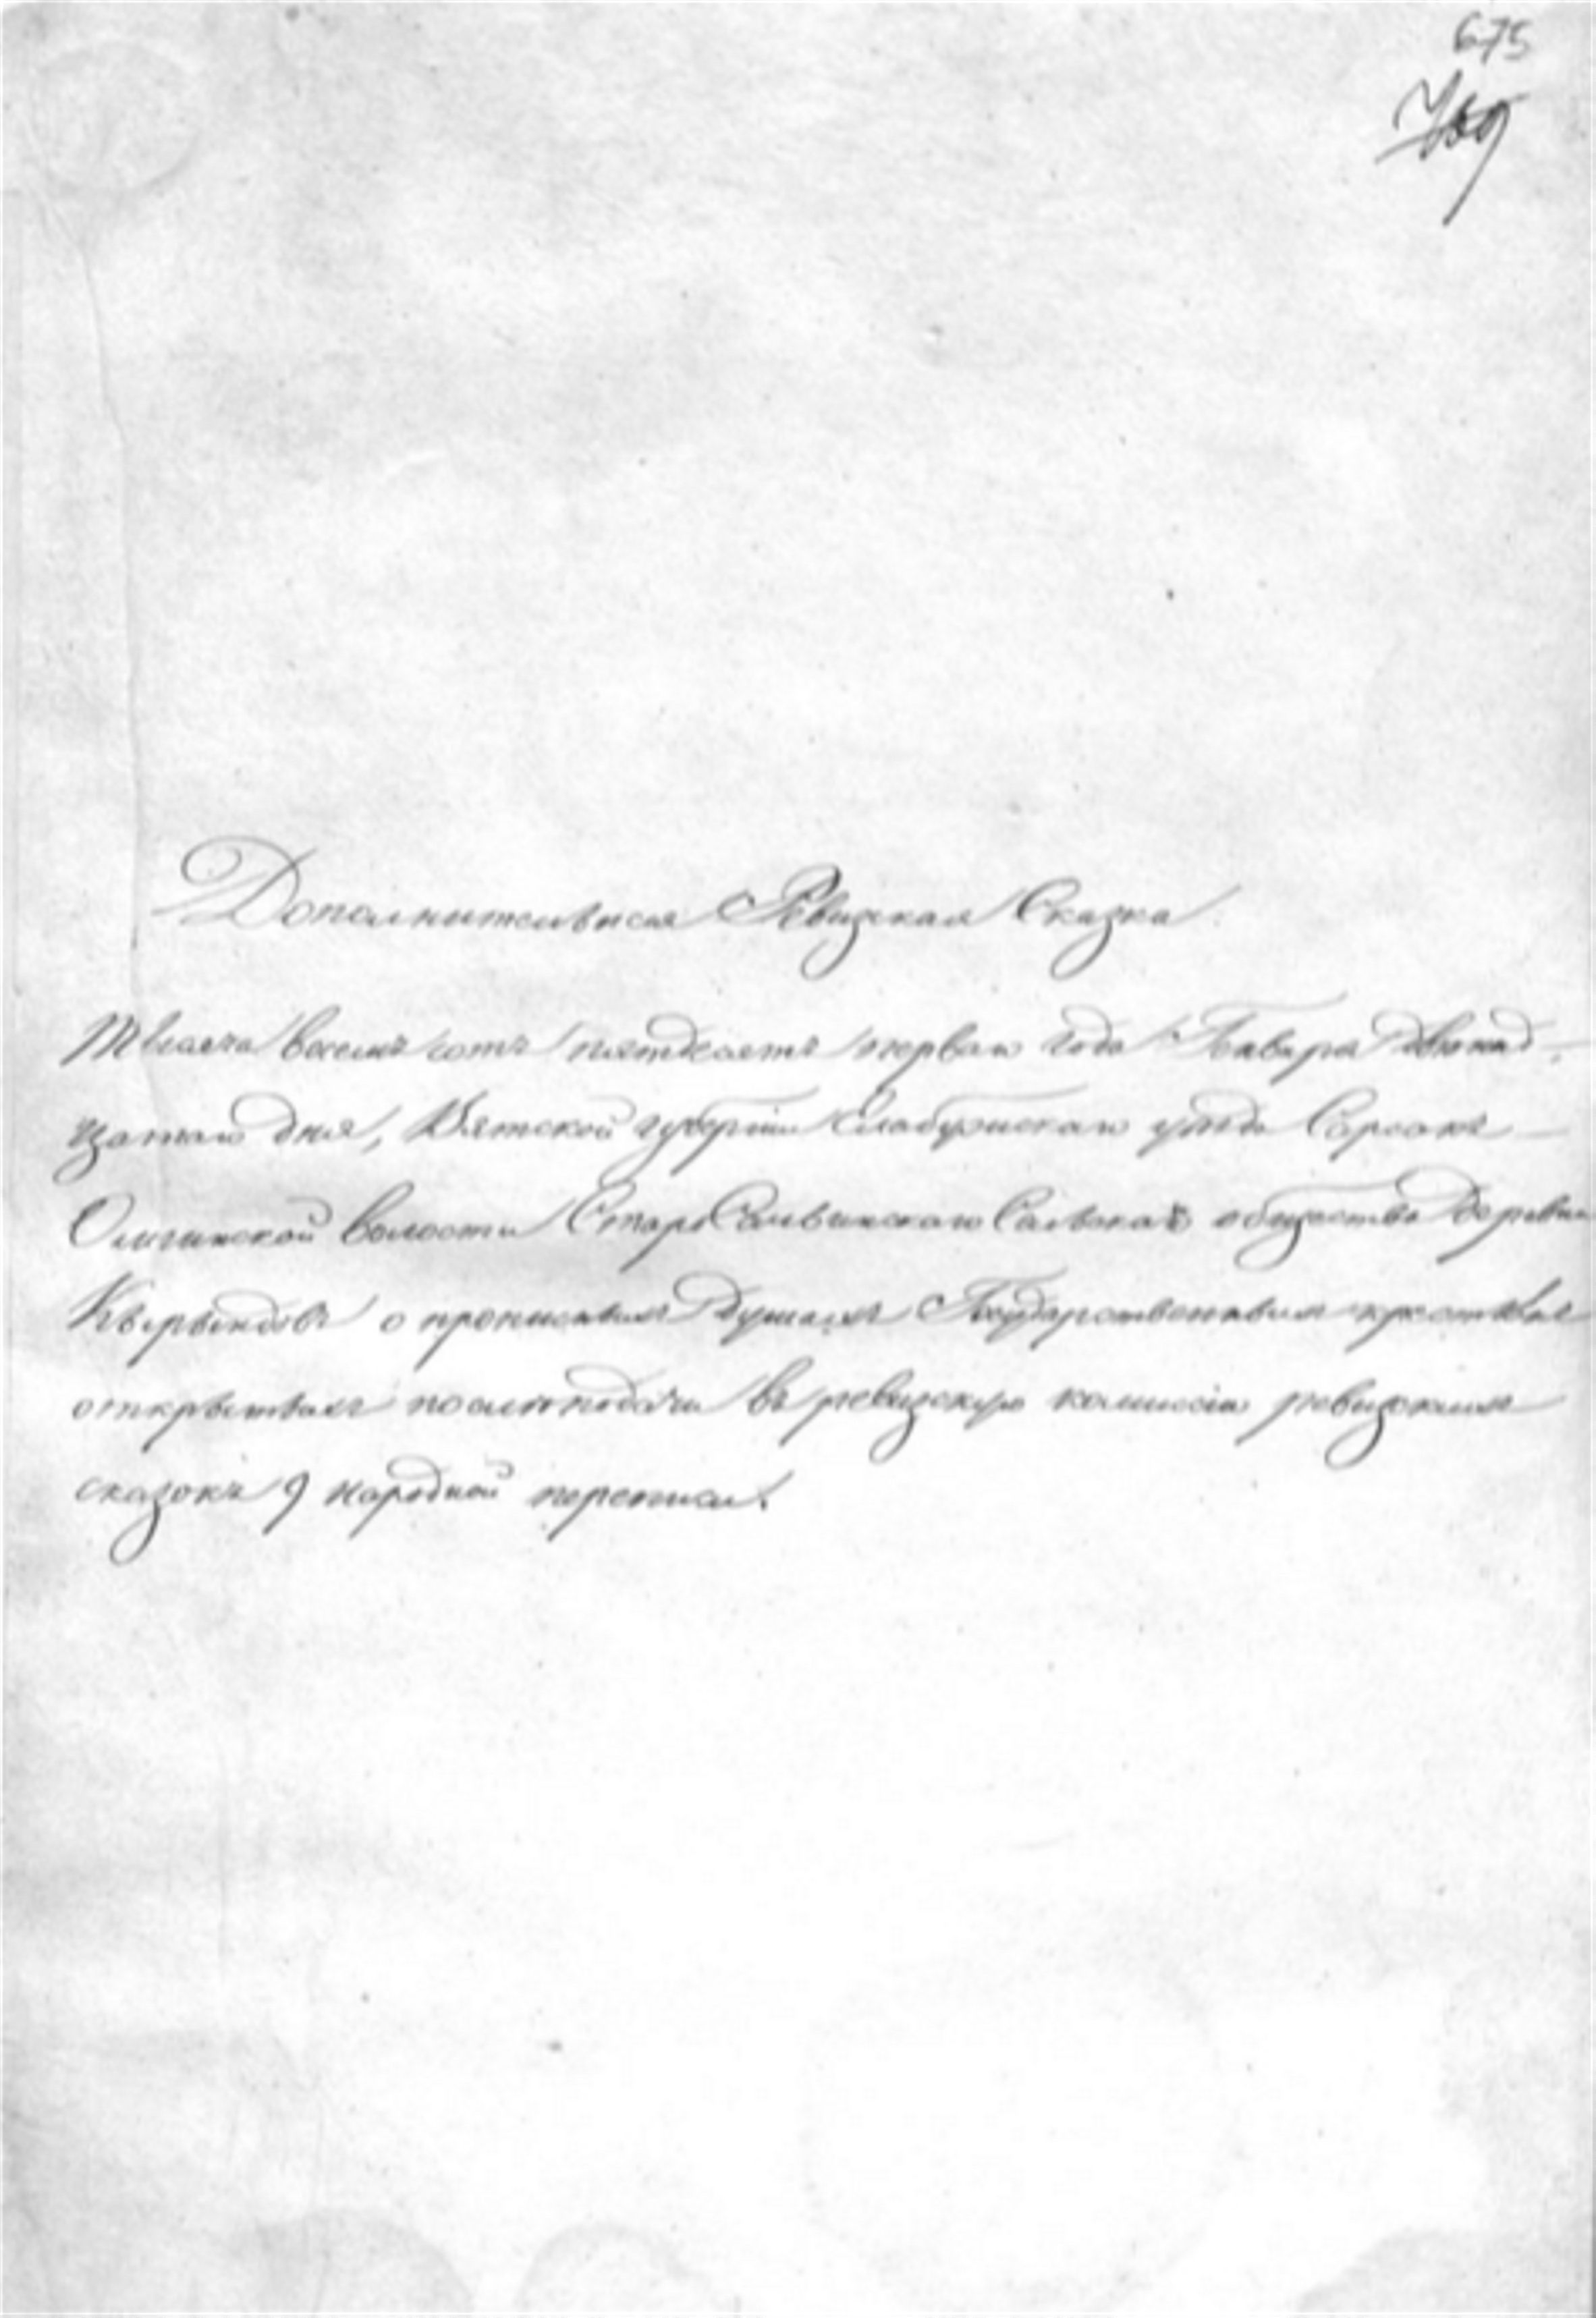 675
Дополнительная Ревизская Сказка
Тысяча восемь сотъ пятдесятъ перваго года Генваря двенад-
цатаго дня, Вятской губерніи Елабужскаго уѣзда Сарсакъ-
Омгинской волости Старо Сальинскаго Сельскаго общества деревни
о прописныхъ душахъ Государственныхъ крестьянъ
открытыхъ после подачи въ ревизскую комисію ревизскихъ
сказокъ 9 народной переписи.